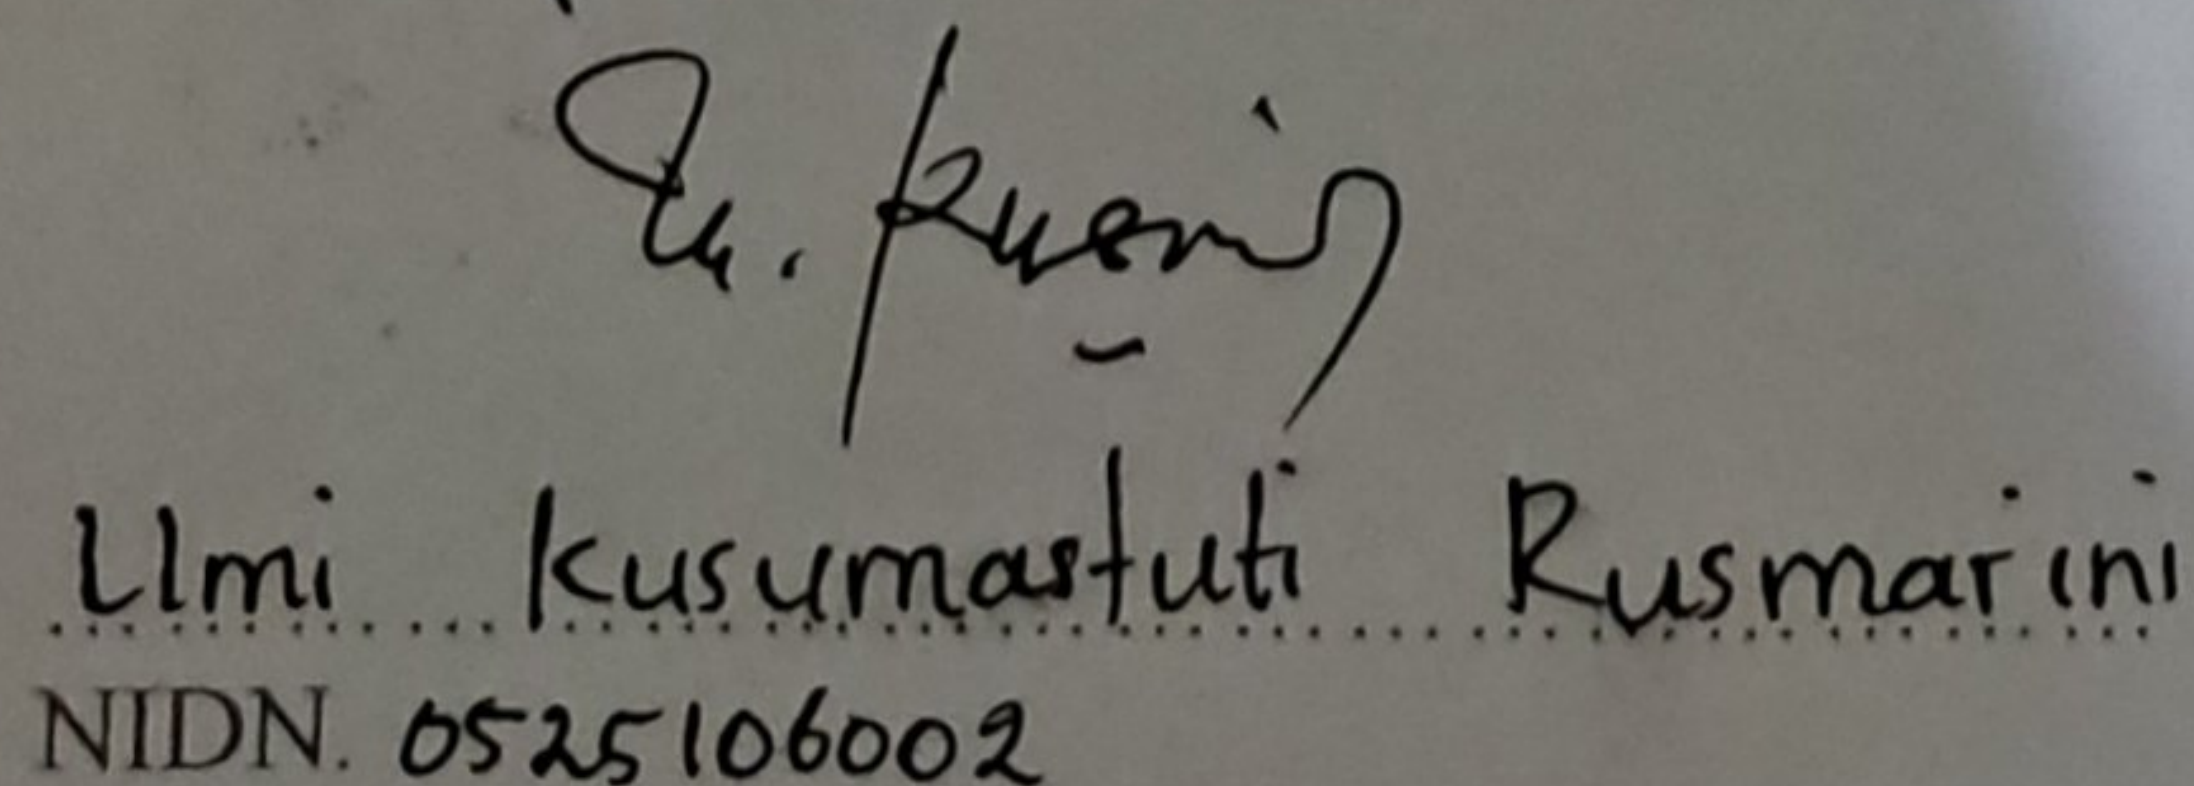 Umi Kusumastuti Rusmarini
NIDN. 0525106002